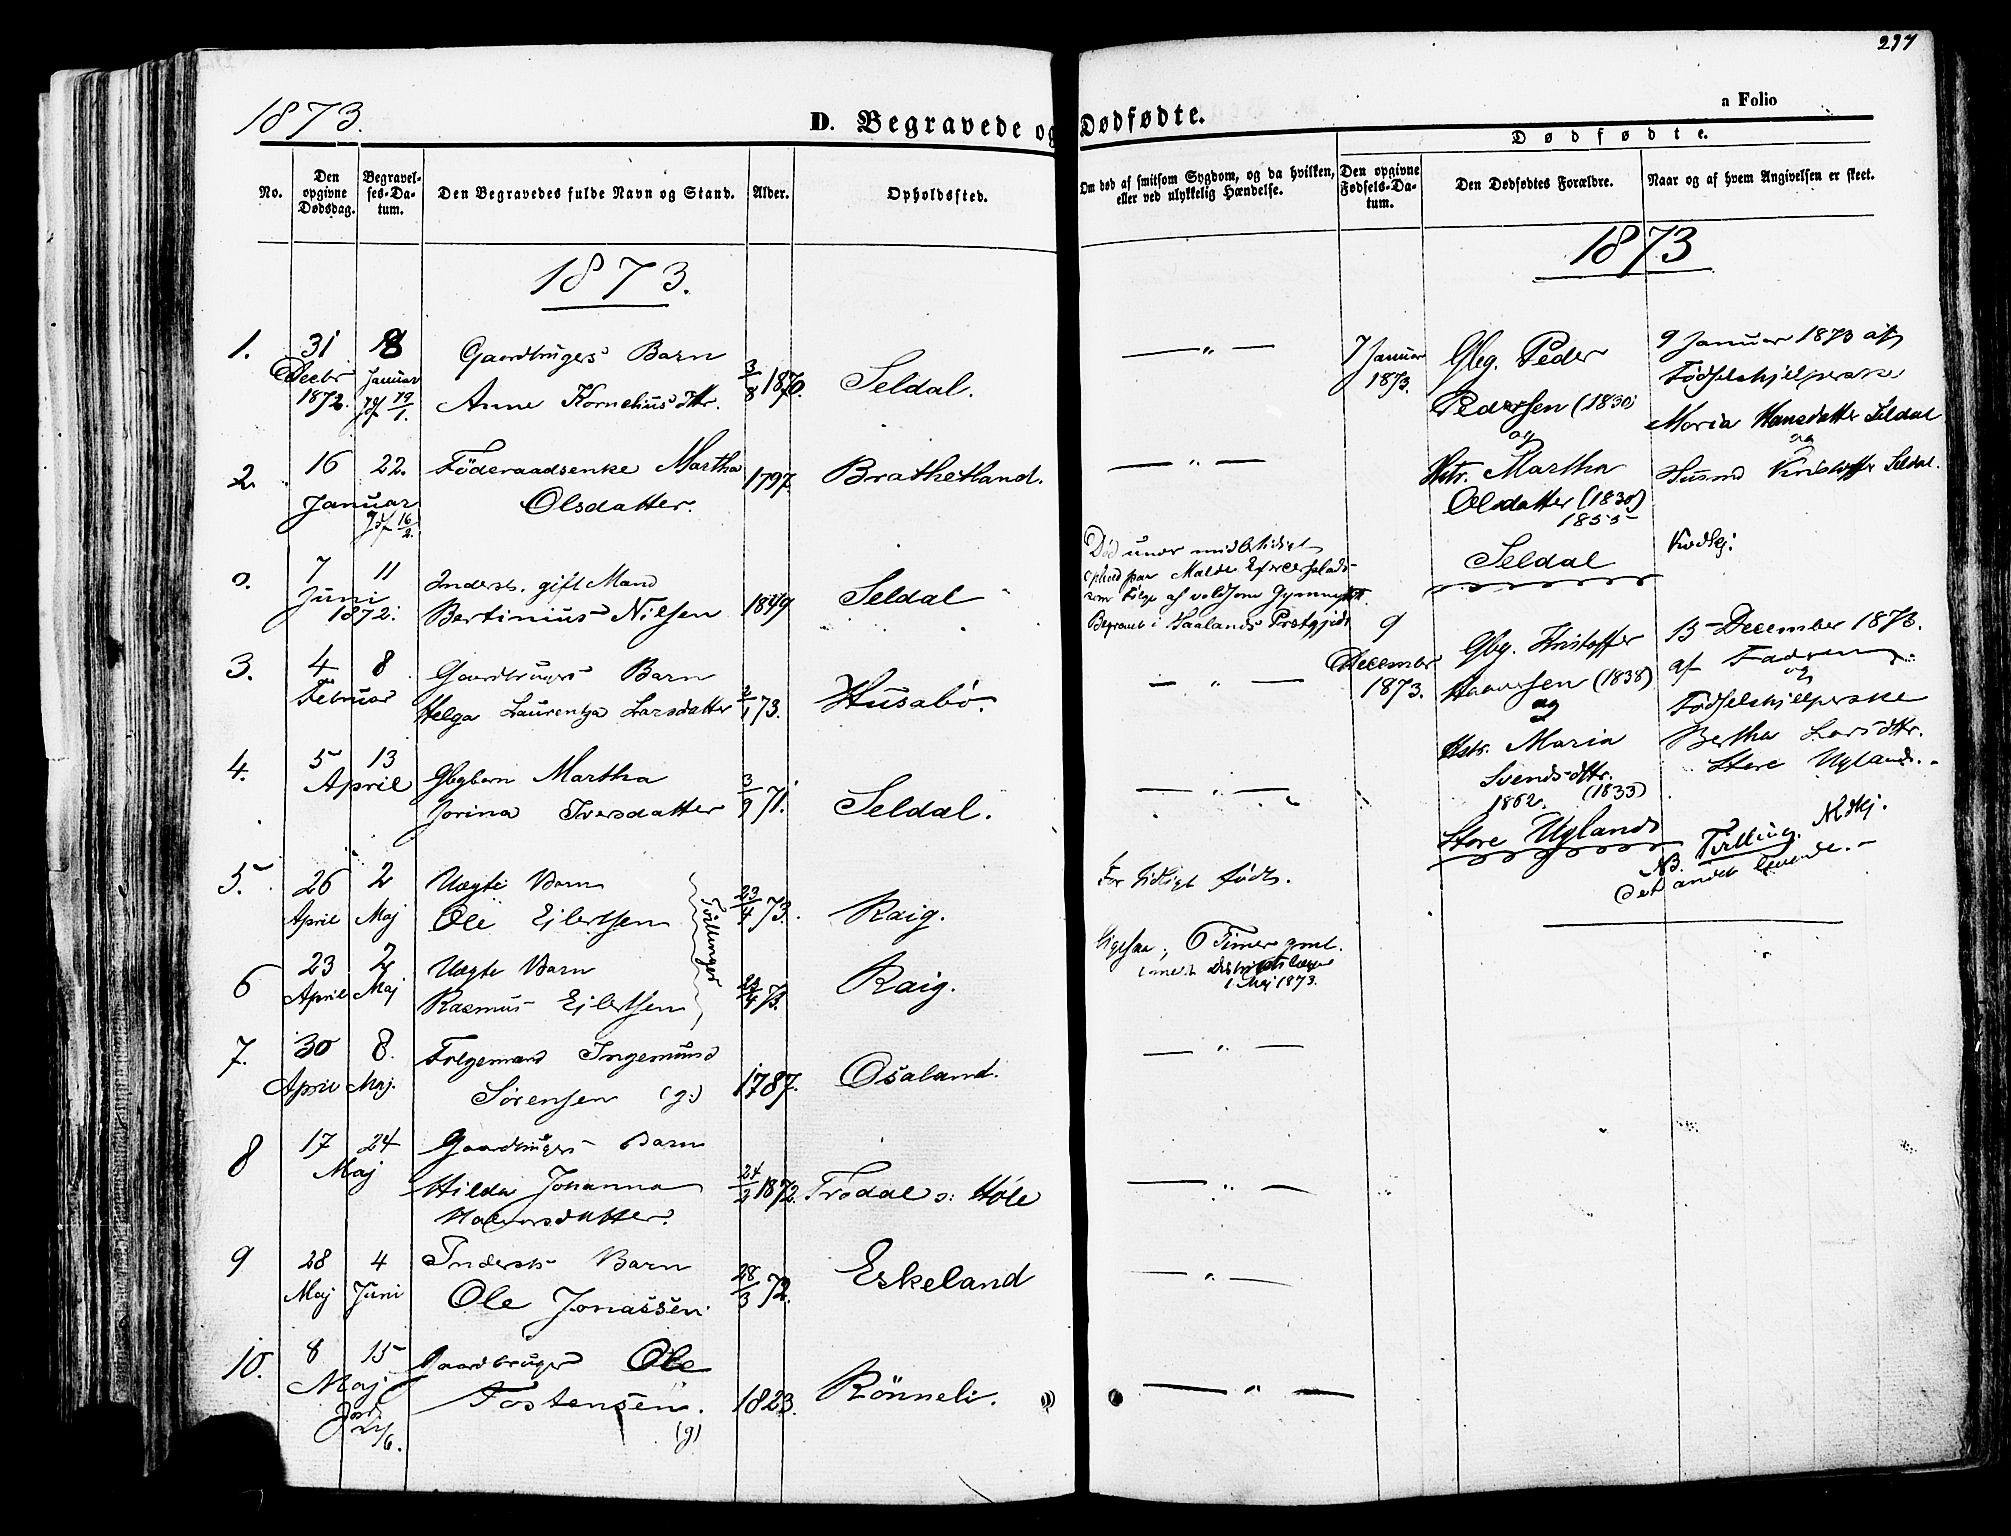 237
1873.
D. Begravede og Dødfødte.
a Folio
Dødfødte.
No.
Den opgivne Dødsdag.
Begravelses-Datum.
Den Begravedes fulde Navn og Stand.
Alder.
Opholdssted.
Om død af smitsom Sygdom, og da hvilken, eller ved ulykkelig Hændelse.
Den opgivne Fødsels-Datum.
Den Dødfødtes Forældre.
Naar og af hvem Angivelsen er skeet.
1873.
1873
1. 31 8 Gaardbrugers Barn
Decbr Januar 3/8 1870. Seldal. — " —
1872. Jdf 19/1. Anne Kornelius dttr.
2. 16 22. Föderaadsenke Martha 1797. Brathetland. — " —
Januar Olsdatter.
Jdf 16/2.
0. 7 11 Inderst. gift Mand
Juni
1872. Bertinius Nilsen 1849 Seldal
Død under midlertidigt
som Følge af voldsom
Begravet i Haalands Præstgjeld
3. 4 8 Gaardbrugers Barn
Februar Helga Laurentza Larsdatter 2/1 73. Husabö. — " —
4. 5 13
April Gbgbarn Martha 3/9 71. Seldal. — " —
Jorina Iversdatter
5. 26 2 Uægte Barn
April Maj Ole Ejlertsen 23/4 73. Raig. For tidligt født.
Tvillinger
6 23 2 Uægte Barn
April Maj Rasmus Ejlertsen 23/4 73. Raig. Ligesaa, 6 Timer gml.
1 Maj 1873.
7. 30 8. Folgemand Ingemund
April Maj. Sörensen (g.) 1787. Osaland. — " —
8 17 24 Gaardbrugers Barn
Maj Hilda Johanna 24/2 1872. Trodal s: Höle — " —
Halvorsdatter.
9 28 4 Inderst Barn
Maj Juni Ole Jonassen. 28/3 72. Eskeland — " —
10. 8 15 Gaardbruger Ole
Maj Tostensen. 1823. Rönneli. — " —
(g)
7 Januar
1873.
Gbg. Peder
Pedersen (1830)
og
Hstr. Martha
Olsdatter (1830)
1855
Seldal
9 Januar 1873 af
Födselshjelperske
Maria Hansdatter Seldal
og
Husmd Kristoffer Seldal.
9
December
1873.
Gbg. Kristoffer
(1838)
og
Hstr. Maria
Svendsdttr.
1862. (1833)
Store Ugland
13 December 1873.
af Faderen
og
Födselshjelperske
Bertha Larsdttr.
Store Ugland.
NB. Tvilling.
Det andet levende.